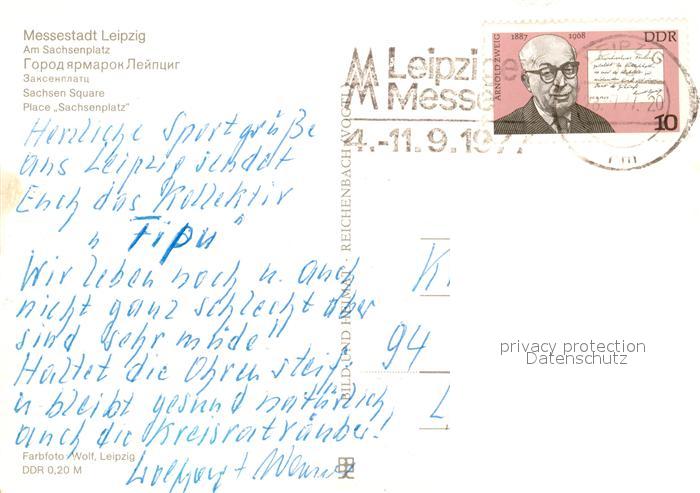 Messestadt Leipzig
Am Sachsenplatz
Город ярмарок Лейпциг
Заксенплатц
Sachsen Square
Place „Sachsenplatz"
Herzliche Sportgrüße
aus Leipzig sendet
Euch das Kollektiv
„Tipu"
Wir leben noch u. auch
nicht ganz schlecht aber
sind sehr müde!!
Haltet die Ohren steif
u. bleibt gesund natürlich,
auch die Kreisräuber!
Wolfgang + Werner
Farbfoto: Wolf, Leipzig
DDR 0,20 M
BILD UND HEIMAT · REICHENBACH (VOGTL)
Leipziger
Messe
4.-11.9.1977
ARNOLD ZWEIG 1887 1968 DDR
10
K
94
L
privacy protection
Datenschutz